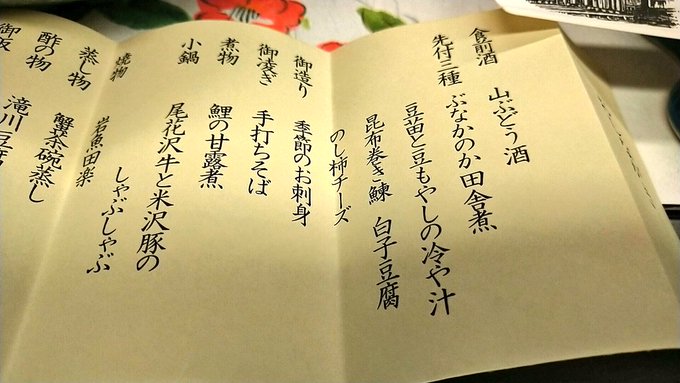 食前酒 山ぶどう酒
先付三種 ぶなかのか田舎煮
豆苗と豆もやしの冷や汁
昆布巻き鰊 白子豆腐
のし柿チーズ
御造り 季節のお刺身
御凌ぎ 手打ちそば
煮物 鯉の甘露煮
小鍋 尾花沢牛と米沢豚の
しゃぶしゃぶ
焼物 岩魚田楽
蒸し物 蟹茶碗蒸し
酢の物 滝川豆腐
御飯